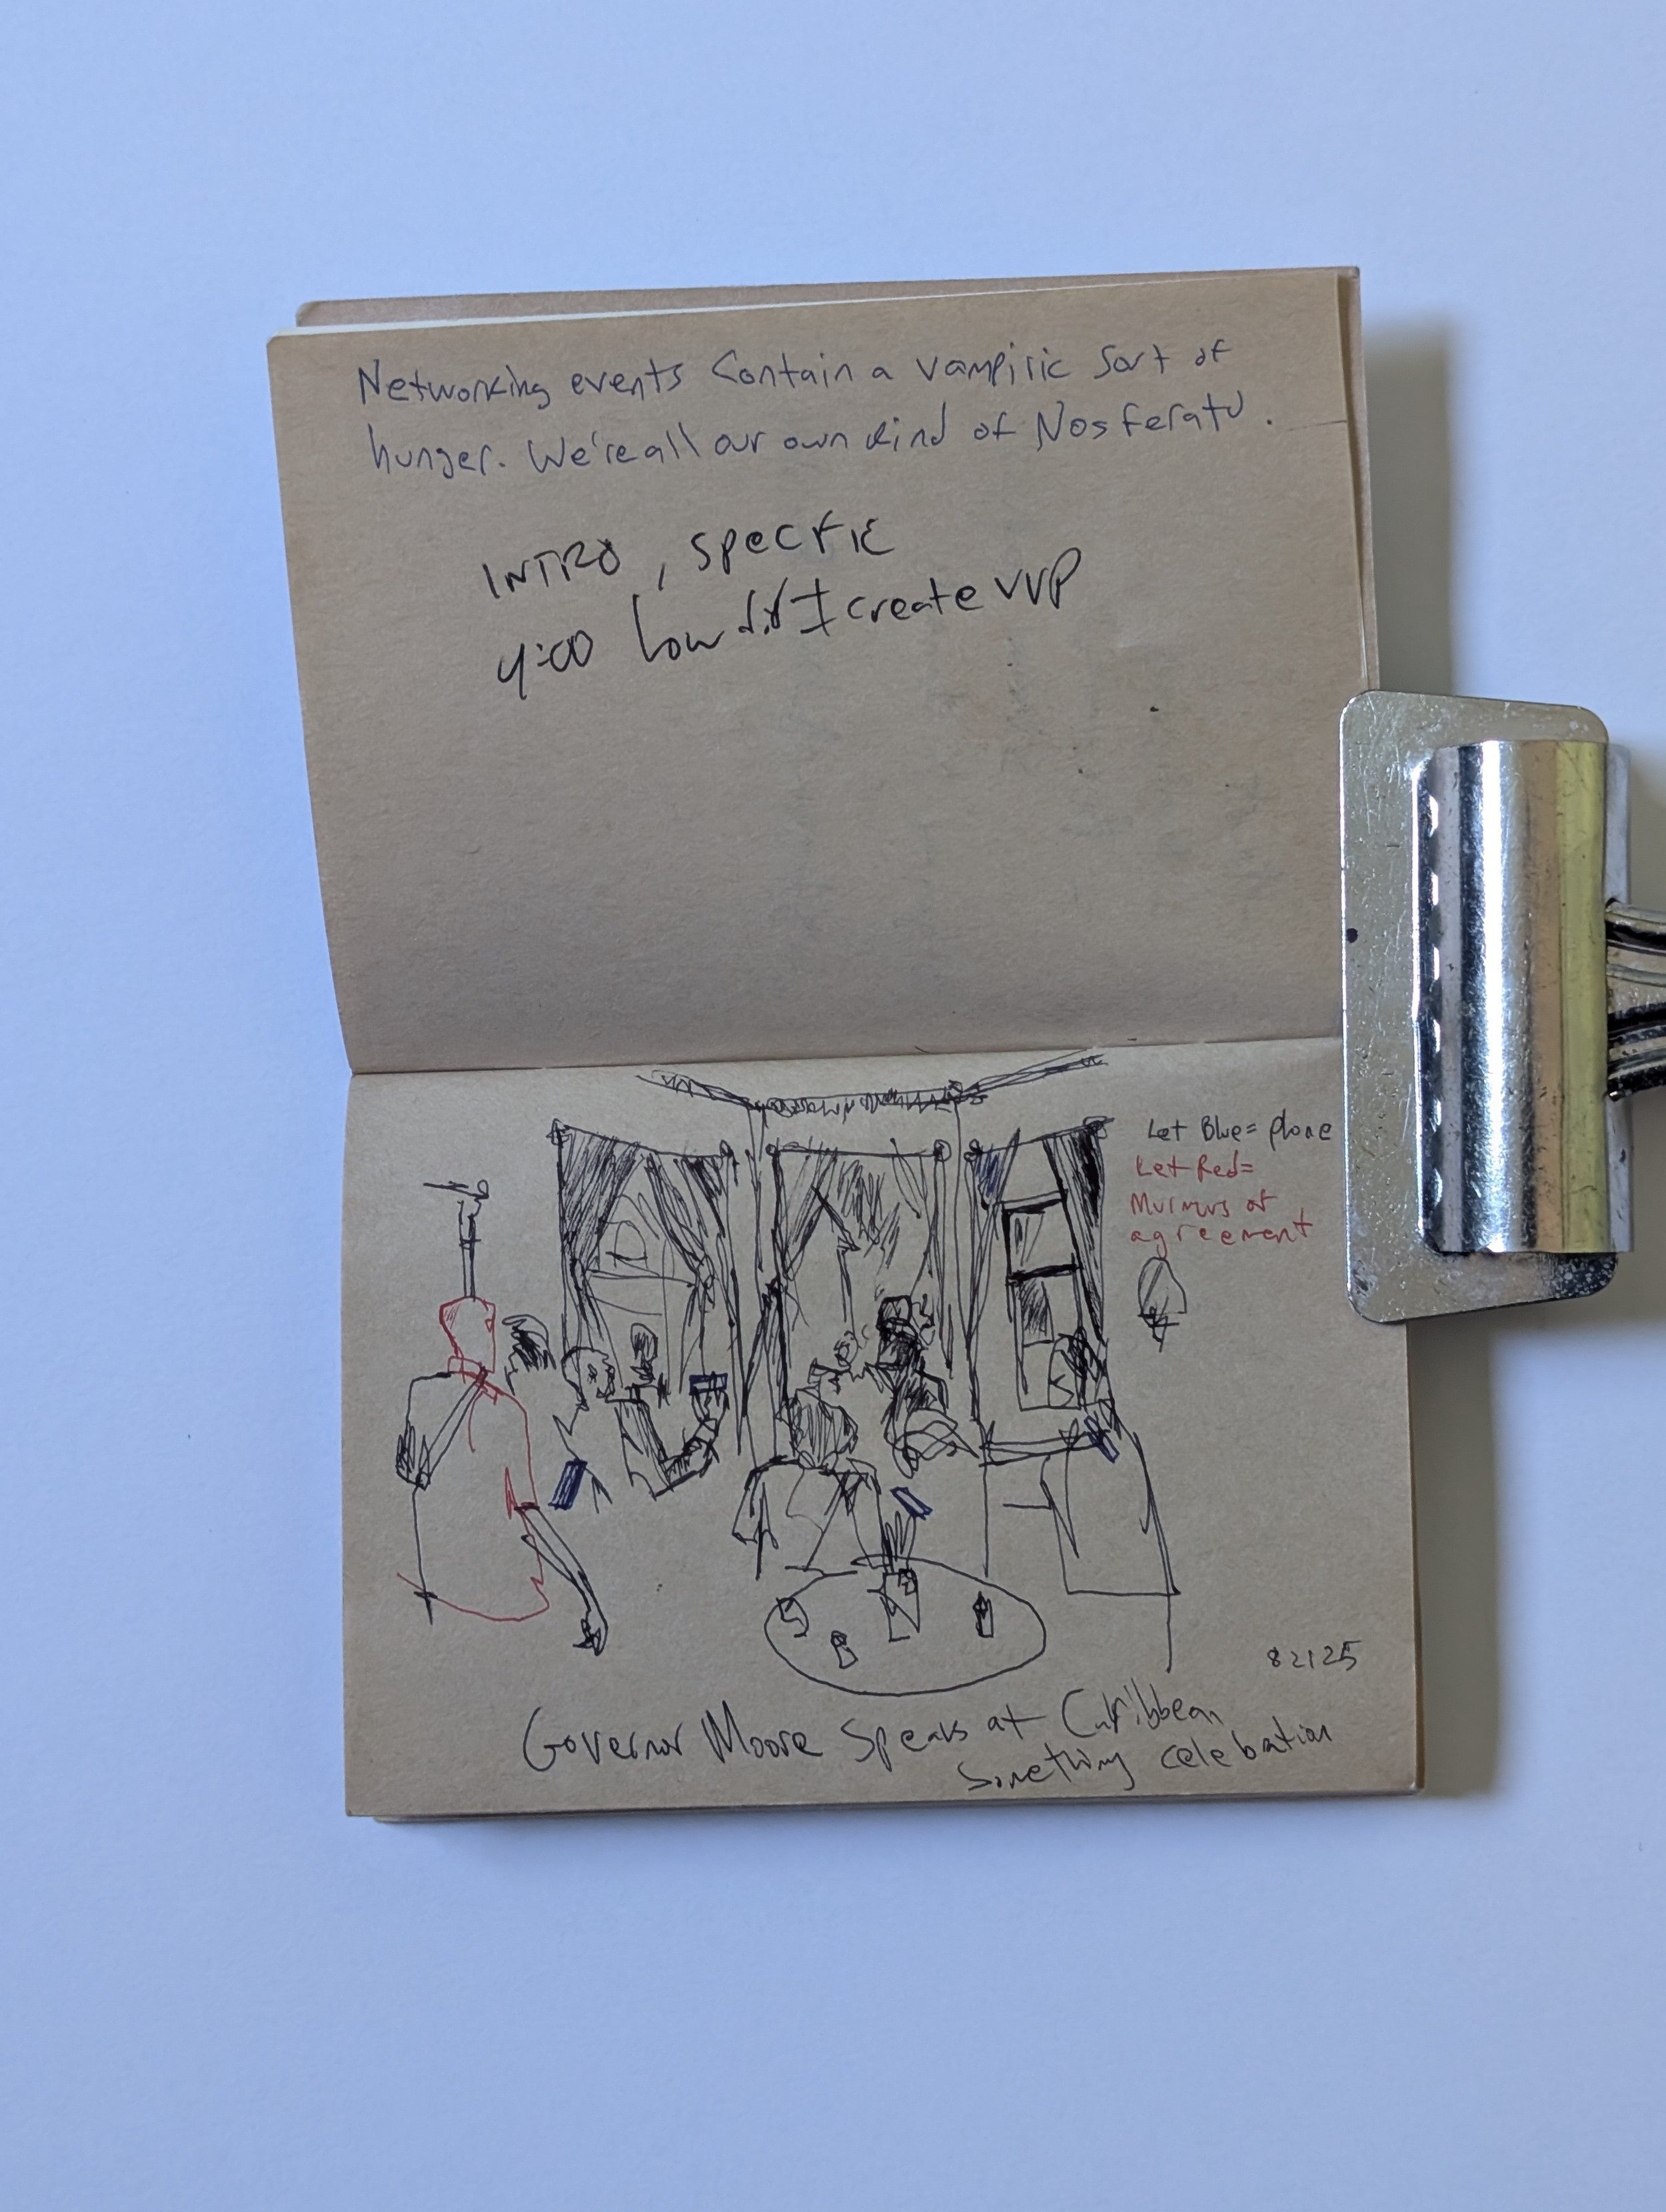 Networking events contain a vampiric sort of
hunger. We're all our own kind of Nosferatu.
INTRO, specific
4:00 how did I create VVP
Let Blue = phone
Let Red =
Murmurs of
agreement
82125
Governor Moore Speaks at Caribbean
Something celebration